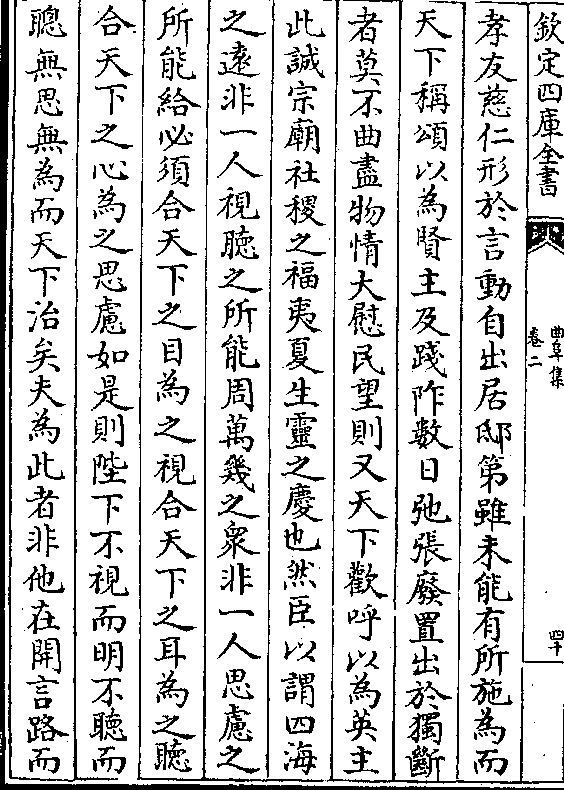 欽定四庫全書
曲阜集
卷二
四十
孝友慈仁形於言動自出居邸第雖未能有所施為而
天下稱頌以為賢主及踐阼數日弛張廢置出於獨斷
者莫不曲盡物情大慰民望則又天下歡呼以為英主
此誠宗廟社稷之福夷夏生靈之慶也然臣以謂四海
之遠非一人視聽之所能周萬幾之衆非一人思慮之
所能給必須合天下之目為之視合天下之耳為之聽
合天下之心為之思慮如是則陛下不視而明不聽而
聰無思無為而天下治矣夫為此者非他在開言路而